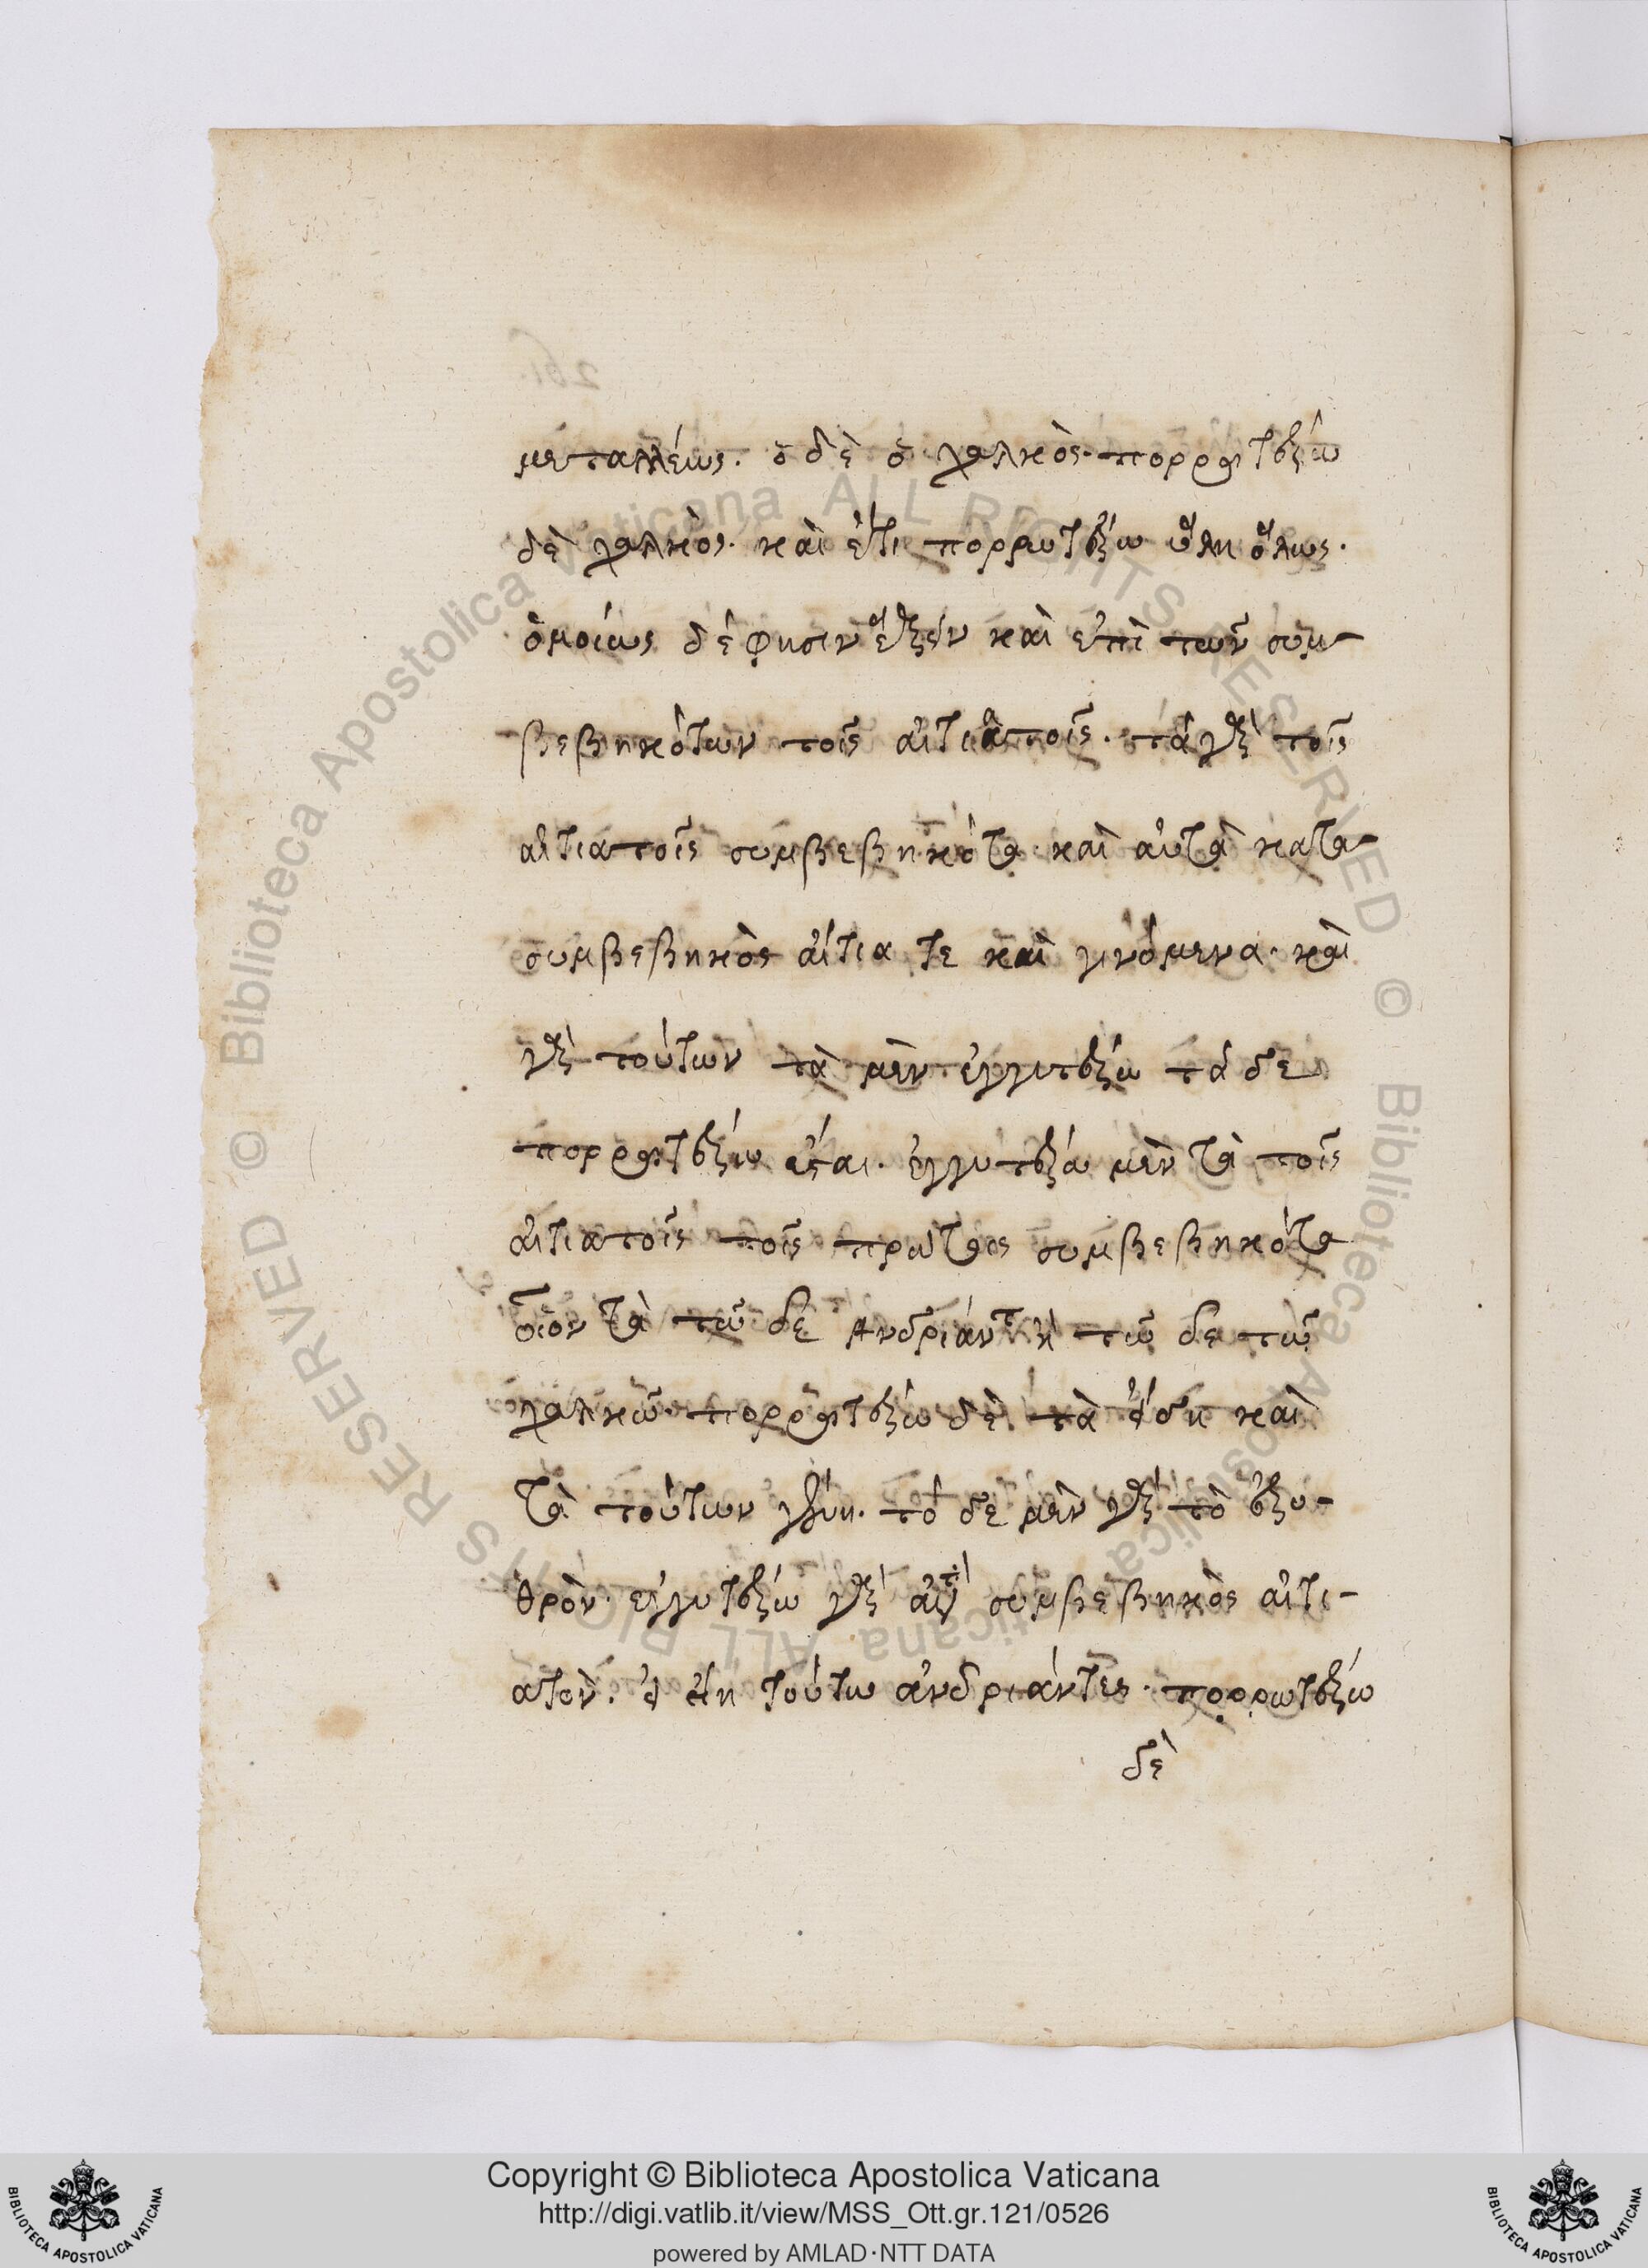 μεταλλέως. ὅδε ὁ χαλκὸς. πορρωτέρω
δὲ χαλκὸς. καὶ ἔτι πορρωτέρω ὕλη ὅλως.
ὁμοίως δέ φησιν ἕξειν καὶ ἐπὶ τῶν συμ-
βεβηκότων τοῖς αἰτιατοῖς. τὰ γὰρ τοῖς
αἰτιατοῖς συμβεβηκότα καὶ αὐτὰ κατα
συμβεβηκὸς αἴτιά τε καὶ γινόμενα. καὶ
γὰρ τούτων τὰ μὲν ἐγγυτέρω τὰ δε
πορρωτέρω ἔσται. ἐγγυτέρω μὲν τὰ τοῖς
αἰτιατοῖς τοῖς πρώτοις συμβεβηκότα
οἷον τὰ τῶ δε ἀνδριάντι ἢ τῶ δε τῶ
χαλκῶ. πορρωτέρω δὲ τὰ εἴδη καὶ
τὰ τούτων γένη. τό δε μὲν γὰρ τὸ ἐρυ-
θρὸν ἐγγυτέρω γὰρ συμβεβηκὸς αἰτι-
ατὸν. τούτω ἀνδριάντες. πορρωτέρω
δὲ
Copyright © Biblioteca Apostolica Vaticana
http://digi.vatlib.it/view/MSS_Ott.gr.121/0526
powered by AMLAD·NTT DATA